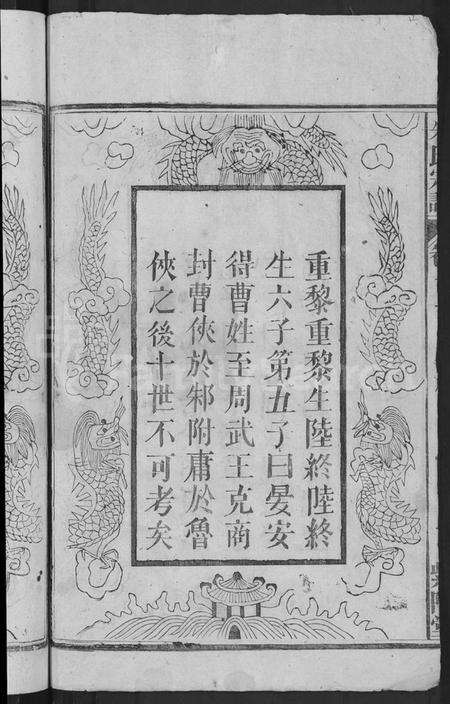 重黎重黎生陸終陸終
生六子第五子曰晏安
得曹姓至周武王克商
封曹俠於邾附庸於魯
俠之後十世不可考矣